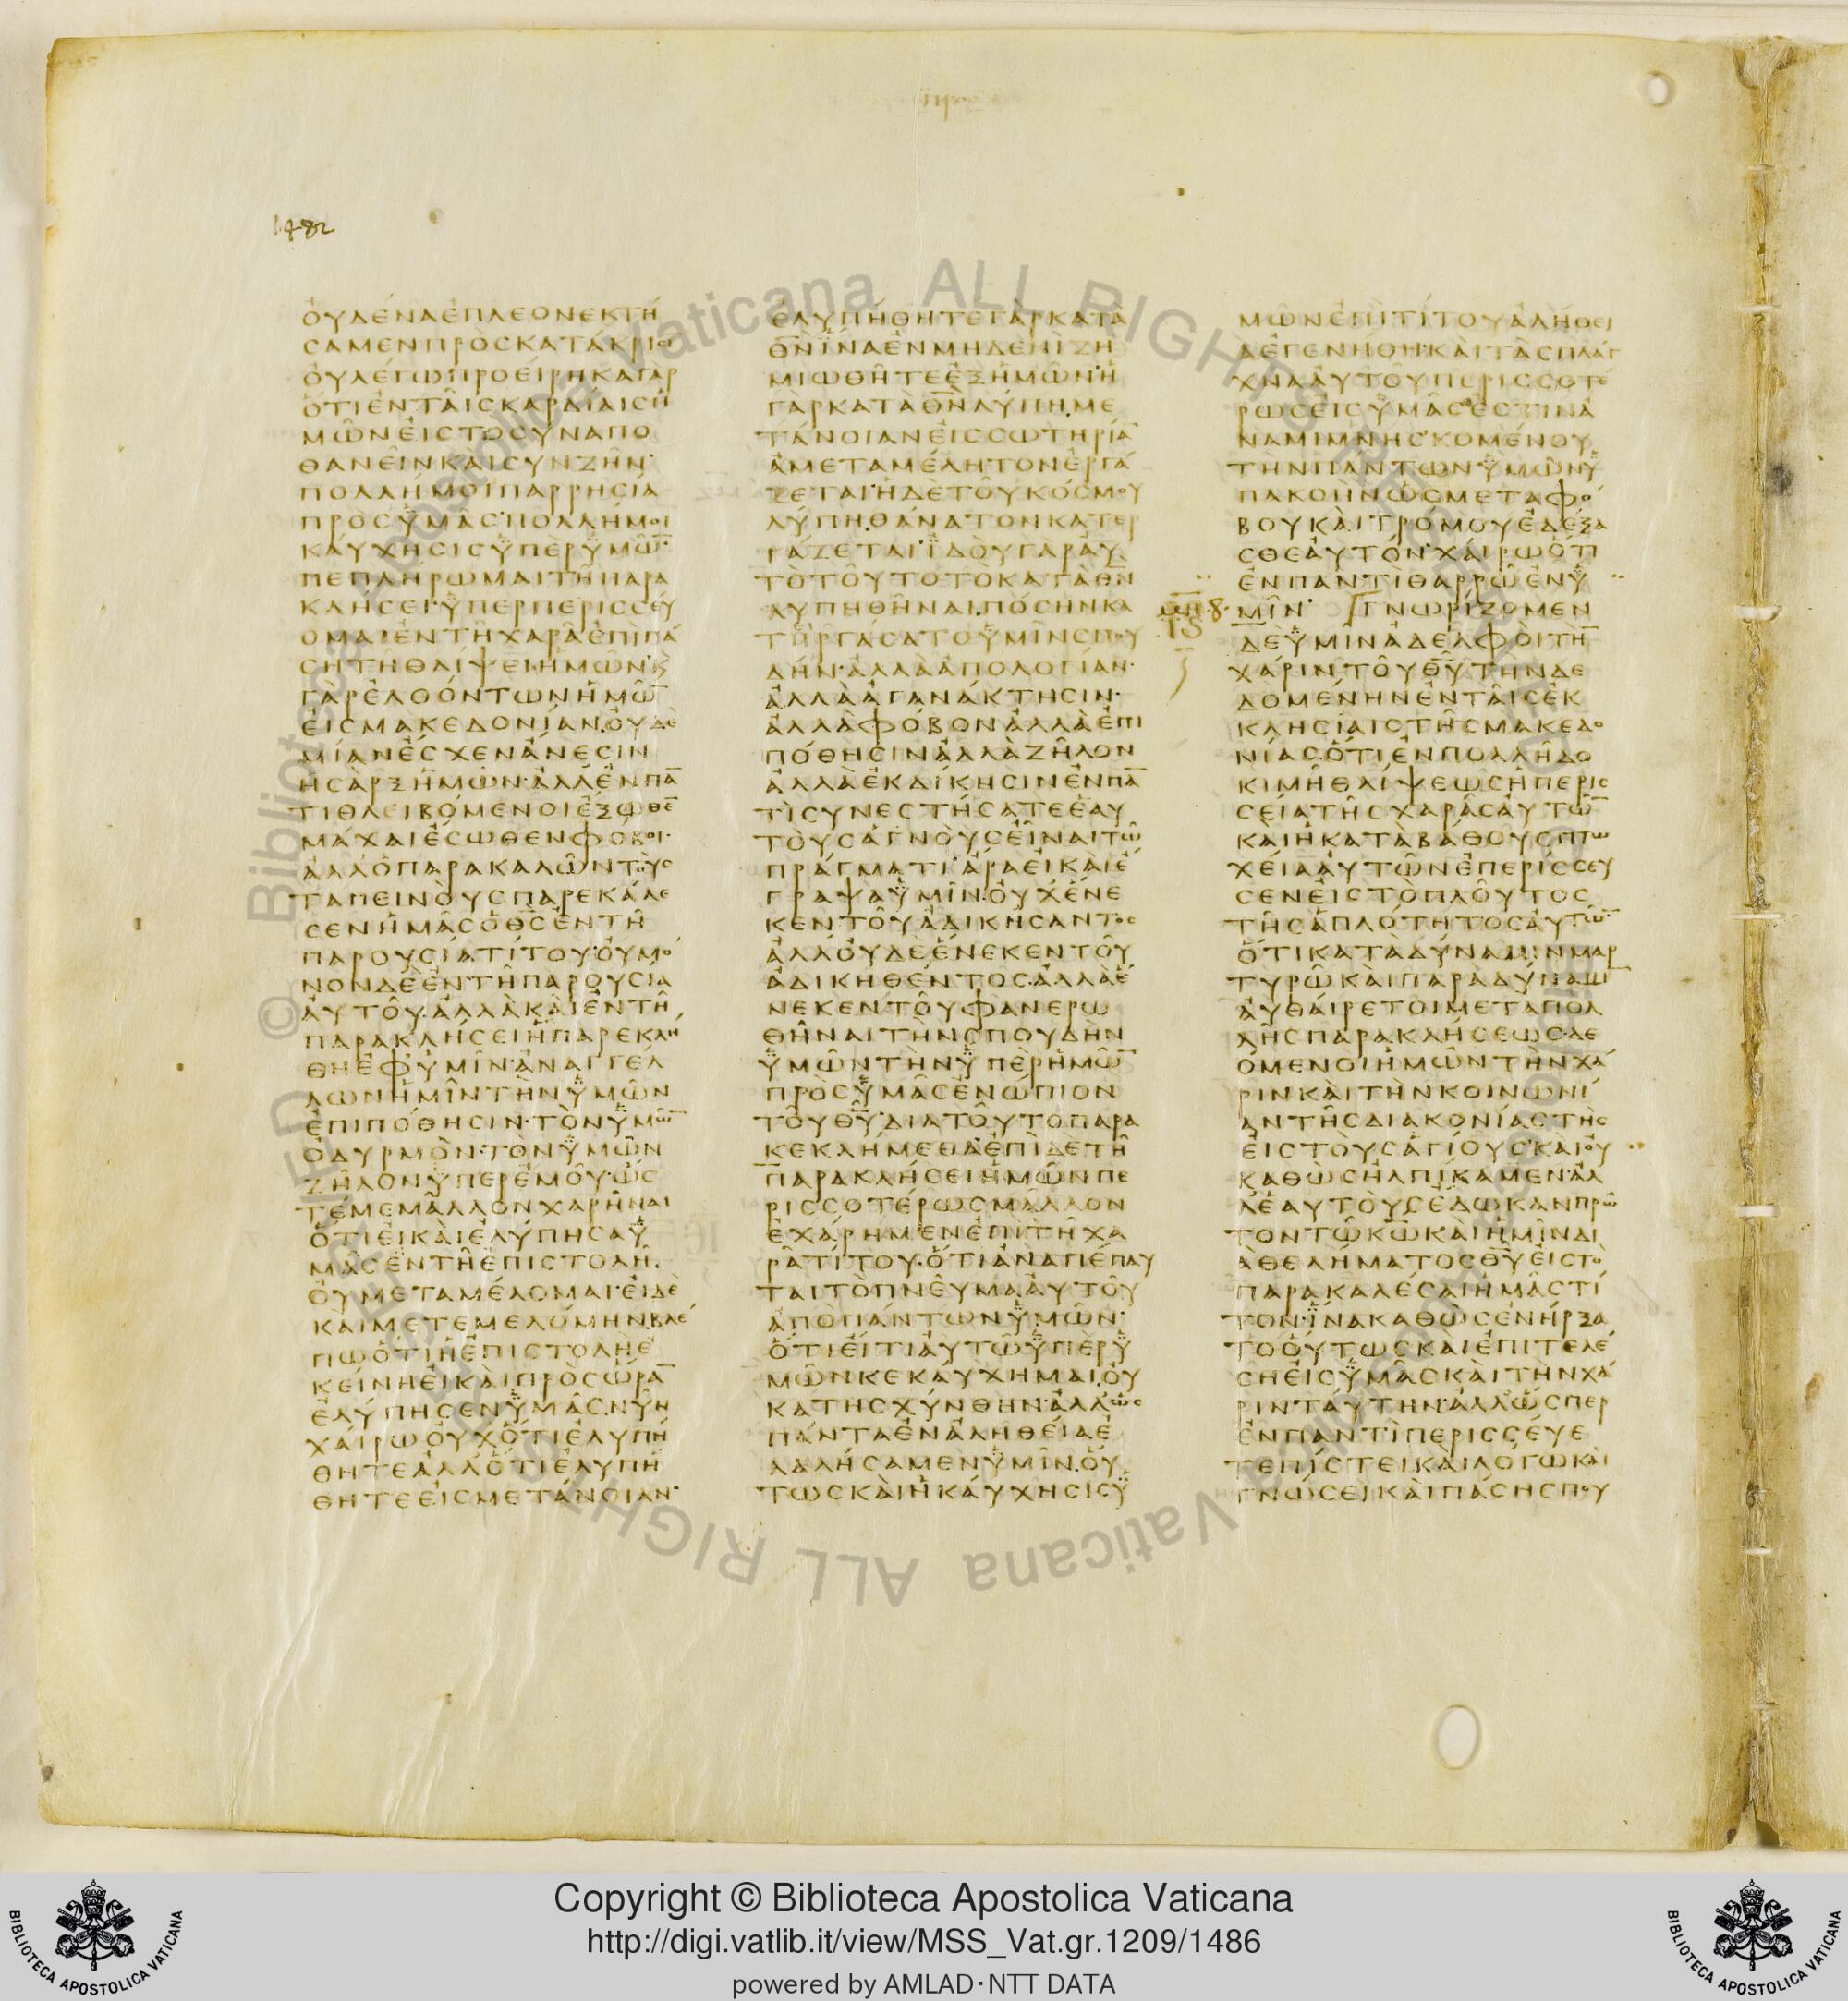 1482
ΟΥΔΕΝΑΕΠΛΕΟΝΕΚΤΗ
ϹΑΜΕΝΠΡΟϹΚΑΤΑΚΡΙϹΙ̅
ΟΥΛΕΓΩΠΡΟΕΙΡΗΚΑΓΑΡ
ΟΤΙΕΝΤΑΙϹΚΑΡΔΙΑΙϹΗ
ΜΩΝΕΙϹΤΟϹΥΝΑΠΟ
ΘΑΝΕΙΝΚΑΙϹΥΝΖΗΝ·
ΠΟΛΛΗΜΟΙΠΑΡΡΗϹΙΑ
ΠΡΟϹΥΜΑϹ·ΠΟΛΛΗΜΟΙ
ΚΑΥΧΗϹΙϹΥΠΕΡΥΜΩ̅·
ΠΕΠΛΗΡΩΜΑΙΤΗΠΑΡΑ
ΚΛΗϹΕΙ·ΥΠΕΡΠΕΡΙϹϹΕΥ
ΟΜΑΙΕΝΤΗΧΑΡΑΕΠΙΠΑ
ϹΗΤΗΘΛΙΨΕΙΗΜΩΝ·Κ
ΓΑΡΕΛΘΟΝΤΩΝΗΜΩ̅
ΕΙϹΜΑΚΕΔΟΝΙΑΝ·ΟΥΔΕ
ΜΙΑΝΕϹΧΕΝΑΝΕϹΙΝ
ΗϹΑΡΞΗΜΩΝ·ΑΛΛΕΝΠΑ̅
ΤΙΘΛΕΙΒΟΜΕΝΟΙΕΞΩΘΕ̅
ΜΑΧΑΙΕϹΩΘΕΝΦΟΒΟΙ·
ΑΛΛΟΠΑΡΑΚΑΛΩΝΤΟΥϹ
ΤΑΠΕΙΝΟΥϹΠΑΡΕΚΑΛΕ
ϹΕΝΗΜΑϹΟΘ̅Ϲ̅ΕΝΤΗ
ΠΑΡΟΥϹΙΑΤΙΤΟΥ·ΟΥΜΟ
ΝΟΝΔΕΕΝΤΗΠΑΡΟΥϹΙΑ
ΑΥΤΟΥ·ΑΛΛΑΚΑΙΕΝΤΗ
ΠΑΡΑΚΛΗϹΕΙΗΠΑΡΕΚΛΗ
ΘΗΕΦΥΜΙΝ·ΑΝΑΓΓΕΛ
ΛΩΝΗΜΙΝΤΗΝΥΜΩΝ
ΕΠΙΠΟΘΗϹΙΝ·ΤΟΝΥΜΩ̅
ΟΔΥΡΜΟΝ·ΤΟΝΥΜΩΝ
ΖΗΛΟΝΥΠΕΡΕΜΟΥ·ΩϹ
ΤΕΜΕΜΑΛΛΟΝΧΑΡΗΝΑΙ
ΟΤΙΕΙΚΑΙΕΛΥΠΗϹΑΥ
ΜΑϹΕΝΤΗΕΠΙϹΤΟΛΗ·
ΟΥΜΕΤΑΜΕΛΟΜΑΙ·ΕΙΔΕ
ΚΑΙΜΕΤΕΜΕΛΟΜΗΝ·ΒΛΕ
ΠΩΟΤΙΗΕΠΙϹΤΟΛΗΕ
ΚΕΙΝΗΕΙΚΑΙΠΡΟϹΩΡΑ̅
ΕΛΥΠΗϹΕΝΥΜΑϹ·ΝΥΝ
ΧΑΙΡΩΟΥΧΟΤΙΕΛΥΠΗ
ΘΗΤΕΑΛΛΟΤΙΕΛΥΠΗ
ΘΗΤΕΕΙϹΜΕΤΑΝΟΙΑΝ·
ΕΛΥΠΗΘΗΤΕΓΑΡΚΑΤΑ
Θ̅Ν̅ΙΝΑΕΝΜΗΔΕΝΙΖΗ
ΜΙΩΘΗΤΕΕΞΗΜΩΝ·Η
ΓΑΡΚΑΤΑΘ̅Ν̅ΛΥΠΗΜΕ
ΤΑΝΟΙΑΝΕΙϹϹΩΤΗΡΙΑ̅
ΑΜΕΤΑΜΕΛΗΤΟΝΕΡΓΑ
ΖΕΤΑΙ·ΗΔΕΤΟΥΚΟϹΜΟΥ
ΛΥΠΗΘΑΝΑΤΟΝΚΑΤΕΡ
ΓΑΖΕΤΑΙ·ΙΔΟΥΓΑΡΑΥ
ΤΟΤΟΥΤΟΤΟΚΑΤΑΘ̅Ν̅
ΛΥΠΗΘΗΝΑΙ·ΠΟϹΗΝΚΑ
ΤΗΡΓΑϹΑΤΟΥΜΙΝϹΠΟΥ
ΔΗΝ·ΑΛΛΑΑΠΟΛΟΓΙΑΝ·
ΑΛΛΑΑΓΑΝΑΚΤΗϹΙΝ·
ΑΛΛΑΦΟΒΟΝΑΛΛΑΕΠΙ
ΠΟΘΗϹΙΝΑΛΛΑΖΗΛΟΝ
ΑΛΛΑΕΚΔΙΚΗϹΙΝΕΝΠΑ̅
ΤΙϹΥΝΕϹΤΗϹΑΤΕΕΑΥ
ΤΟΥϹΑΓΝΟΥϹΕΙΝΑΙΤΩ
ΠΡΑΓΜΑΤΙ·ΑΡΑΕΙΚΑΙΕ
ΓΡΑΨΑΥΜΙΝ·ΟΥΧΕΝΕ
ΚΕΝΤΟΥΑΔΙΚΗϹΑΝΤΟϹ
ΑΛΛΟΥΔΕΕΝΕΚΕΝΤΟΥ
ΑΔΙΚΗΘΕΝΤΟϹ·ΑΛΛΑΕ
ΝΕΚΕΝΤΟΥΦΑΝΕΡΩ
ΘΗΝΑΙΤΗΝϹΠΟΥΔΗΝ
ΥΜΩΝΤΗΝΥΠΕΡΗΜΩ̅
ΠΡΟϹΥΜΑϹΕΝΩΠΙΟΝ
ΤΟΥΘ̅Υ̅·ΔΙΑΤΟΥΤΟΠΑΡΑ
ΚΕΚΛΗΜΕΘΑ·ΕΠΙΔΕΤΗ
ΠΑΡΑΚΛΗϹΕΙΗΜΩΝΠΕ
ΡΙϹϹΟΤΕΡΩϹΜΑΛΛΟΝ
ΕΧΑΡΗΜΕΝΕΠΙΤΗΧΑ
ΡΑΤΙΤΟΥ·ΟΤΙΑΝΑΠΕΠΑΥ
ΤΑΙΤΟΠΝΕΥΜΑΑΥΤΟΥ
ΑΠΟΠΑΝΤΩΝΥΜΩΝ·
ΟΤΙΕΙΤΙΑΥΤΩΥΠΕΡΥ
ΜΩΝΚΕΚΑΥΧΗΜΑΙ·ΟΥ
ΚΑΤΗϹΧΥΝΘΗΝ·ΑΛΛΩϹ
ΠΑΝΤΑΕΝΑΛΗΘΕΙΑΕ
ΛΑΛΗϹΑΜΕΝΥΜΙΝ·ΟΥ
ΤΩϹΚΑΙΗΚΑΥΧΗϹΙϹΥ
ΜΩΝΕΠΙΤΙΤΟΥΑΛΗΘΕΙ
ΑΕΓΕΝΗΘΗ·ΚΑΙΤΑϹΠΛΑΓ
ΧΝΑΑΥΤΟΥΠΕΡΙϹϹΟΤΕ
ΡΩϹΕΙϹΥΜΑϹΕϹΤΙΝΑ
ΝΑΜΙΜΝΗϹΚΟΜΕΝΟΥ
ΤΗΝΠΑΝΤΩΝΥΜΩΝΥ
ΠΑΚΟΗΝΩϹΜΕΤΑΦΟ
ΒΟΥΚΑΙΤΡΟΜΟΥΕΔΕΞΑ
ϹΘΕΑΥΤΟΝ·ΧΑΙΡΩΟΤΙ
ΕΝΠΑΝΤΙΘΑΡΡΩΕΝΥ
ΜΙΝ· ΓΝΩΡΙΖΟΜΕΝ
ΔΕΥΜΙΝΑΔΕΛΦΟΙΤΗ̅
ΧΑΡΙΝΤΟΥΘ̅Υ̅ΤΗΝΔΕ
ΔΟΜΕΝΗΝΕΝΤΑΙϹΕΚ
ΚΛΗϹΙΑΙϹΤΗϹΜΑΚΕΔΟ
ΝΙΑϹ·ΟΤΙΕΝΠΟΛΛΗΔΟ
ΚΙΜΗΘΛΙΨΕΩϹΗΠΕΡΙϹ
ϹΕΙΑΤΗϹΧΑΡΑϹΑΥΤΩ̅
ΚΑΙΗΚΑΤΑΒΑΘΟΥϹΠΤΩ
ΧΕΙΑΑΥΤΩΝΕΠΕΡΙϹϹΕΥ
ϹΕΝΕΙϹΤΟΠΛΟΥΤΟϹ
ΤΗϹΑΠΛΟΤΗΤΟϹΑΥΤΩ̅·
ΟΤΙΚΑΤΑΔΥΝΑΜΙΝΜΑΡ
ΤΥΡΩΚΑΙΠΑΡΑΔΥΝΑΜΙ̅
ΑΥΘΑΙΡΕΤΟΙΜΕΤΑΠΟΛ
ΛΗϹΠΑΡΑΚΛΗϹΕΩϹΔΕ
ΟΜΕΝΟΙΗΜΩΝΤΗΝΧΑ
ΡΙΝΚΑΙΤΗΝΚΟΙΝΩΝΙ
ΑΝΤΗϹΔΙΑΚΟΝΙΑϹΤΗϹ
ΕΙϹΤΟΥϹΑΓΙΟΥϹΚΑΙΟΥ
ΚΑΘΩϹΗΛΠΙΚΑΜΕΝ·ΑΛ
ΛΕΑΥΤΟΥϹΕΔΩΚΑΝΠΡΩ
ΤΟΝΤΩΚ̅Ω̅ΚΑΙΗΜΙΝΔΙ
ΑΘΕΛΗΜΑΤΟϹΘ̅Υ̅ΕΙϹΤΟ
ΠΑΡΑΚΑΛΕϹΑΙΗΜΑϹΤΙ
ΤΟΝ·ΙΝΑΚΑΘΩϹΕΝΗΡΞΑ
ΤΟΟΥΤΩϹΚΑΙΕΠΙΤΕΛΕ
ϹΗΕΙϹΥΜΑϹΚΑΙΤΗΝΧΑ
ΡΙΝΤΑΥΤΗΝ·ΑΛΛΩϹΠΕΡ
ΕΝΠΑΝΤΙΠΕΡΙϹϹΕΥΕ
ΤΕΠΙϹΤΕΙΚΑΙΛΟΓΩΚΑΙ
ΓΝΩϹΕΙΚΑΙΠΑϹΗϹΠΟΥ
© Biblioteca Apostolica Vaticana ALL RIGHTS RESERVED
Copyright © Biblioteca Apostolica Vaticana
http://digi.vatlib.it/view/MSS_Vat.gr.1209/1486
powered by AMLAD·NTT DATA
BIBLIOTECA APOSTOLICA VATICANA
BIBLIOTECA APOSTOLICA VATICANA